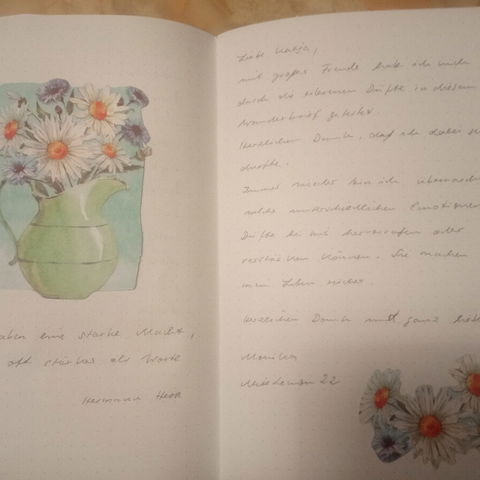 aben eine starke Macht,
oft stärker als Worte
Hermann Hesse
Liebe Katja,
mit großer Freude habe ich mich
durch die erlesenen Düfte in diesem
Wanderbrief getestet.
Herzlichen Dank, daß ich dabei
durfte.
Immer wieder bin ich überrascht
welche unterschiedlichen Emotionen
Düfte bei mir hervorrufen oder
verstärken können. Sie machen
mein Leben reicher.
Herzlichen Dank und ganz liebe
Monika